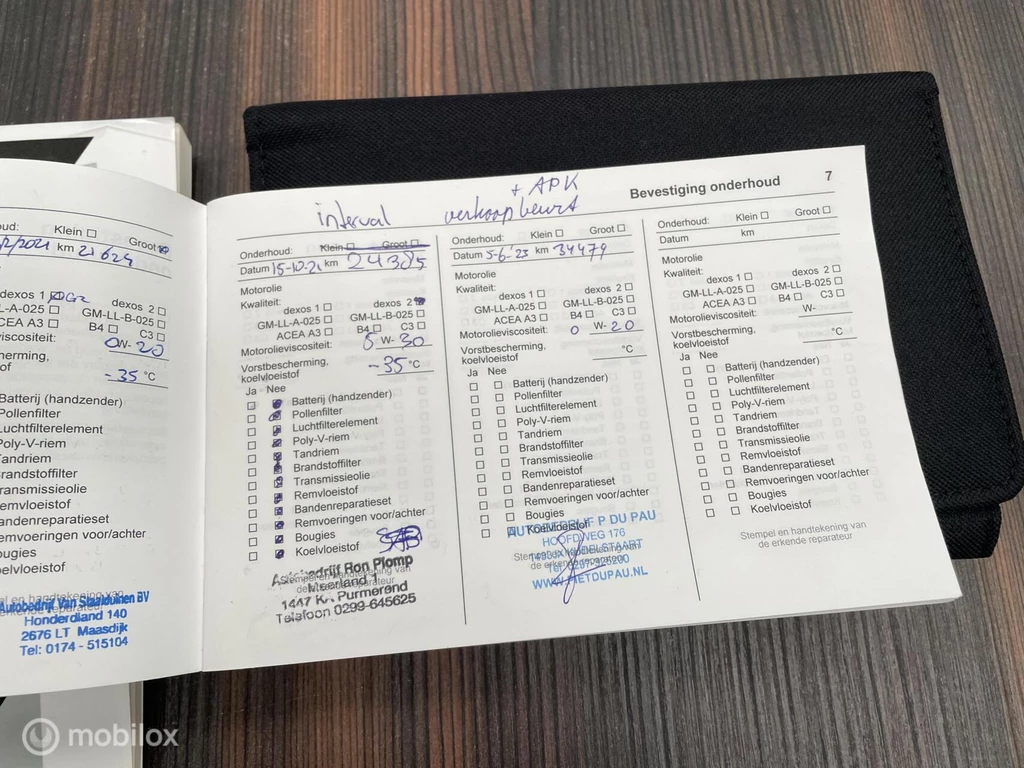 oud: Klein ☐ Groot
/2/2021 km 21624
dexos 1 dexos 2 ☐
LL-A-025 ☐ GM-LL-B-025 ☐
ACEA A3 ☐ B4 ☐ C3 ☐
viscositeit: 0 W- 20
herming,
of -35 °C
Batterij (handzender)
Pollenfilter
Luchtfilterelement
Poly-V-riem
Tandriem
Brandstoffilter
Transmissieolie
Remvloeistof
Bandenreparatieset
Remvoeringen voor/achter
Bougies
Koelvloeistof
Autobedrijf Van Staalduinen BV
Honderdland 140
2676 LT Maasdijk
Tel: 0174 - 515104
Bevestiging onderhoud 7
interval
Onderhoud: Klein ☐ Groot ☐
Datum 15-10-21 km 24385
Motorolie
Kwaliteit:
dexos 1 ☐ dexos 2
GM-LL-A-025 ☐ GM-LL-B-025 ☐
ACEA A3 ☐ B4 ☐ C3 ☐
Motorolieviscositeit: 5 W- 30
Vorstbescherming,
koelvloeistof -35 °C
Ja Nee
Batterij (handzender)
Pollenfilter
Luchtfilterelement
Poly-V-riem
Tandriem
Brandstoffilter
Transmissieolie
Remvloeistof
Bandenreparatieset
Remvoeringen voor/achter
Bougies
Koelvloeistof
Stempel en handtekening van
de erkende reparateur
Autobedrijf Ron Plomp
Meerland 1
1447 Purmerend
Telefoon 0299-645625
+ APK
verkoopbeurt
Onderhoud: Klein ☐ Groot ☐
Datum 5-6-'23 km 34479
Motorolie
Kwaliteit:
dexos 1 ☐ dexos 2 ☐
GM-LL-A-025 ☐ GM-LL-B-025 ☐
ACEA A3 ☐ B4 ☐ C3 ☐
Motorolieviscositeit: 0 W- 20
Vorstbescherming,
koelvloeistof °C
Ja Nee
Batterij (handzender)
Pollenfilter
Luchtfilterelement
Poly-V-riem
Tandriem
Brandstoffilter
Transmissieolie
Remvloeistof
Bandenreparatieset
Remvoeringen voor/achter
Bougies
Koelvloeistof
Stempel en handtekening van
de erkende reparateur
AUTOBEDRIJF P DU PAU
HOOFDWEG 176
WWW.PIETDUPAU.NL
Onderhoud: Klein ☐ Groot ☐
Datum km
Motorolie
Kwaliteit:
dexos 1 ☐ dexos 2 ☐
GM-LL-A-025 ☐ GM-LL-B-025 ☐
ACEA A3 ☐ B4 ☐ C3 ☐
Motorolieviscositeit: W-
Vorstbescherming,
koelvloeistof °C
Ja Nee
Batterij (handzender)
Pollenfilter
Luchtfilterelement
Poly-V-riem
Tandriem
Brandstoffilter
Transmissieolie
Remvloeistof
Bandenreparatieset
Remvoeringen voor/achter
Bougies
Koelvloeistof
Stempel en handtekening van
de erkende reparateur
mobilox